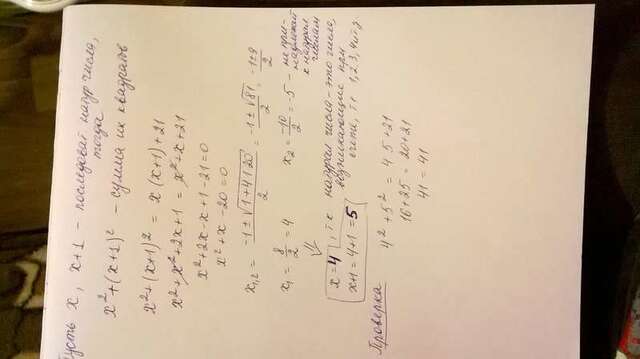 пусть x, x+1 - последоват натур числа,
тогда
x² + (x+1)² - сумма их квадратов
x² + (x+1)² = x (x+1) + 21
x² + x² + 2x + 1 = x² + x + 21
x² + 2x - x + 1 - 21 = 0
x² + x - 20 = 0
x₁,₂ = (-1 ± √(1+4·1·20))/2 = (-1 ± √81)/2 = (-1±9)/2
x₁ = 8/2 = 4 x₂ = -10/2 = -5 - не при-
надлежат
к натурал
числам
⇓
x = 4, т к натурал числа - это числа,
возникающие при
x+1 = 4+1 = 5 счете, т е 1,2,3,4 и т д
Проверка
4² + 5² = 4·5 + 21
16 + 25 = 20 + 21
41 = 41